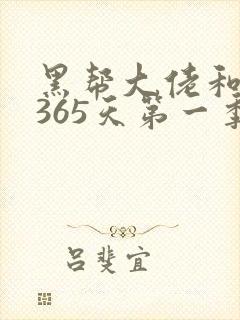 黑帮大佬和
365天第一季
吕斐宜